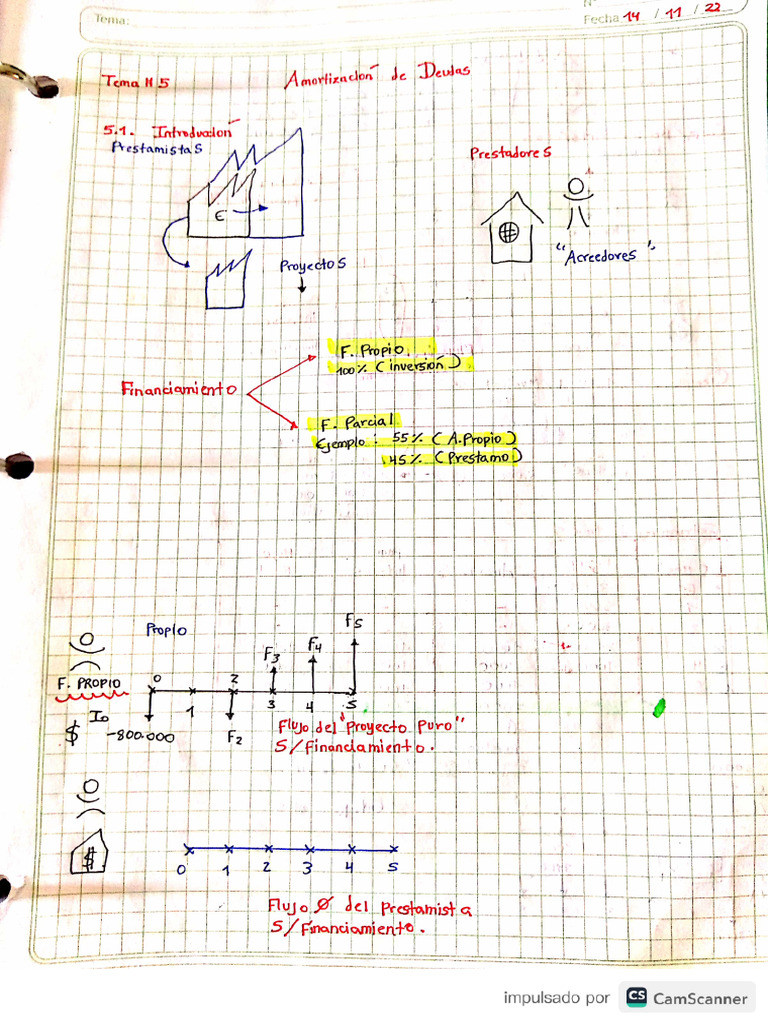 N°
Tema:
Fecha 14 / 11 / 22
Tema N 5
Amortización de Deudas
5.1. Introducción
Prestamistas
Prestadores
€
"Acreedores"
Proyectos
F. Propio.
100% (inversión)
Financiamiento
F. Parcial.
Ejemplo: 55% (A.Propio)
45% (Prestamo)
Propio
F3 F4 F5
F. PROPIO
0 1 2 3 4 5
I0
$ -800.000
F2
Flujo del "Proyecto Puro"
S/Financiamiento.
$
0 1 2 3 4 5
Flujo Ø del Prestamista
S/Financiamiento.
impulsado por CS CamScanner